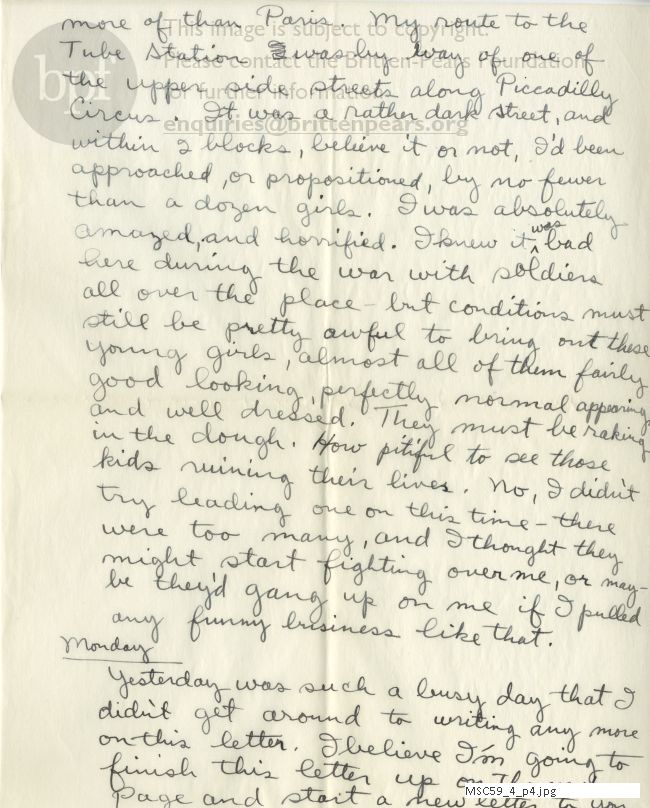 more of than Paris. My route to the
Tube Station was by way of one of
the upper side streets along Piccadilly
Circus. It was a rather dark street, and
within 2 blocks, believe it or not, I'd been
approached, or propositioned, by no fewer
than a dozen girls. I was absolutely
amazed, and horrified. I knew it was bad
here during the war with soldiers
all over the place - but conditions must
still be pretty awful to bring out these
young girls, almost all of them fairly
good looking, perfectly normal appearing
and well dressed. They must be raking
in the dough. How pitiful to see those
kids ruining their lives. No, I didn't
try leading one on this time - there
were too many, and I thought they
might start fighting over me, or may-
be they'd gang up on me if I pulled
any funny business like that.
Monday
Yesterday was such a busy day that I
didn't get around to writing any more
on this letter. I believe I'm going to
finish this letter up on
Page and start a new letter to you
bpf
This image is subject to copyright.
Please contact the Britten-Pears Foundation
for further information:
enquiries@brittenpears.org
MSC59_4_p4.jpg